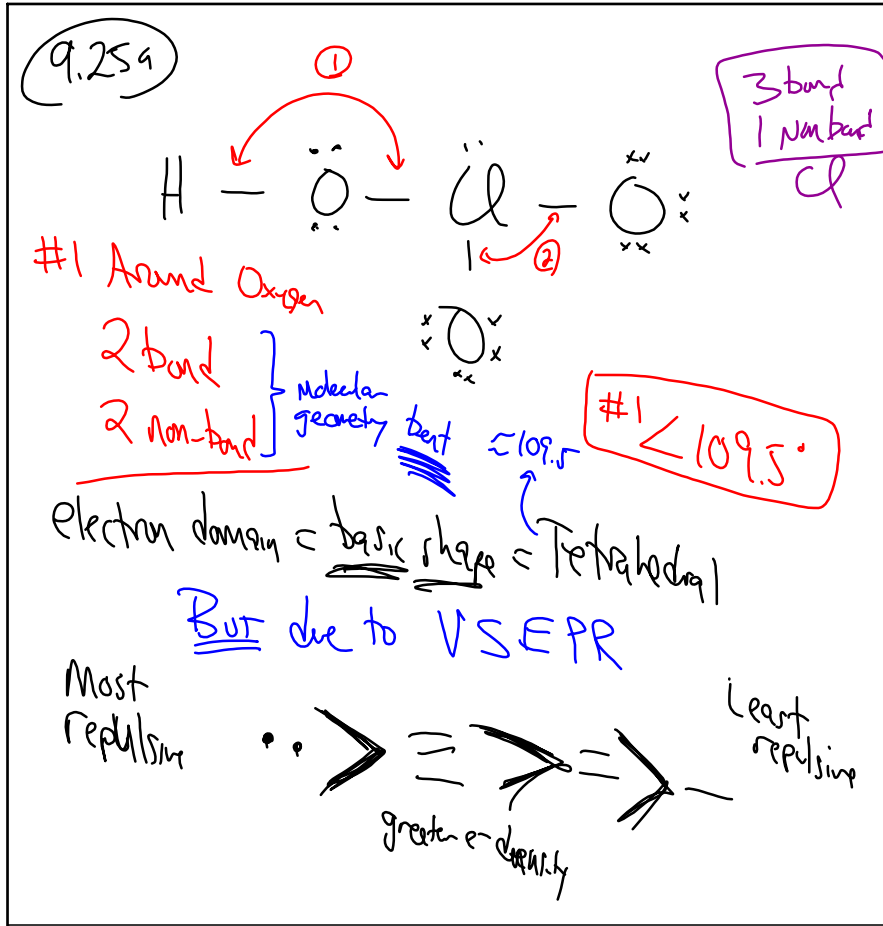 9.25a
①
3 bond
1 Non bond
Cl
H — O — Cl — O
②
#1 Around Oxygen
O
2 bond
2 non-bond
Molecular
geometry bent
≈109.5
#1 < 109.5°
electron domain = basic shape = Tetrahedral
BUT due to VSEPR
Most
repulsive
Least
repulsive
.. > ≡ > = > —
greater e- density